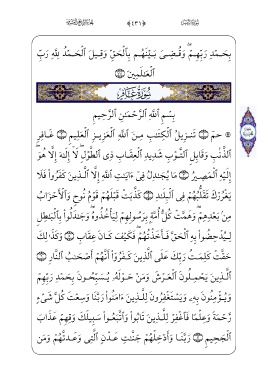 بِحَمْدِ رَبِّهِمْ ۖ وَقُضِىَ بَيْنَهُم بِٱلْحَقِّ وَقِيلَ ٱلْحَمْدُ لِلَّهِ رَبِّ
ٱلْعَٰلَمِينَ ۝٧٥
سُورَةُ غَافِرٍ
بِسْمِ ٱللَّهِ ٱلرَّحْمَٰنِ ٱلرَّحِيمِ
۞ حمٓ ۝١ تَنزِيلُ ٱلْكِتَٰبِ مِنَ ٱللَّهِ ٱلْعَزِيزِ ٱلْعَلِيمِ ۝٢ غَافِرِ
ٱلذَّنۢبِ وَقَابِلِ ٱلتَّوْبِ شَدِيدِ ٱلْعِقَابِ ذِى ٱلطَّوْلِ ۖ لَآ إِلَٰهَ إِلَّا هُوَ ۖ
إِلَيْهِ ٱلْمَصِيرُ ۝٣ مَا يُجَٰدِلُ فِىٓ ءَايَٰتِ ٱللَّهِ إِلَّا ٱلَّذِينَ كَفَرُوا۟ فَلَا
يَغْرُرْكَ تَقَلُّبُهُمْ فِى ٱلْبِلَٰدِ ۝٤ كَذَّبَتْ قَبْلَهُمْ قَوْمُ نُوحٍ وَٱلْأَحْزَابُ
مِنۢ بَعْدِهِمْ ۖ وَهَمَّتْ كُلُّ أُمَّةٍۭ بِرَسُولِهِمْ لِيَأْخُذُوهُ ۖ وَجَٰدَلُوا۟ بِٱلْبَٰطِلِ
لِيُدْحِضُوا۟ بِهِ ٱلْحَقَّ فَأَخَذْتُهُمْ ۖ فَكَيْفَ كَانَ عِقَابِ ۝٥ وَكَذَٰلِكَ
حَقَّتْ كَلِمَتُ رَبِّكَ عَلَى ٱلَّذِينَ كَفَرُوٓا۟ أَنَّهُمْ أَصْحَٰبُ ٱلنَّارِ ۝٦
ٱلَّذِينَ يَحْمِلُونَ ٱلْعَرْشَ وَمَنْ حَوْلَهُۥ يُسَبِّحُونَ بِحَمْدِ رَبِّهِمْ
وَيُؤْمِنُونَ بِهِۦ وَيَسْتَغْفِرُونَ لِلَّذِينَ ءَامَنُوا۟ رَبَّنَا وَسِعْتَ كُلَّ شَىْءٍ
رَّحْمَةً وَعِلْمًا فَٱغْفِرْ لِلَّذِينَ تَابُوا۟ وَٱتَّبَعُوا۟ سَبِيلَكَ وَقِهِمْ عَذَابَ
ٱلْجَحِيمِ ۝٧ رَبَّنَا وَأَدْخِلْهُمْ جَنَّٰتِ عَدْنٍ ٱلَّتِى وَعَدتَّهُمْ وَمَن